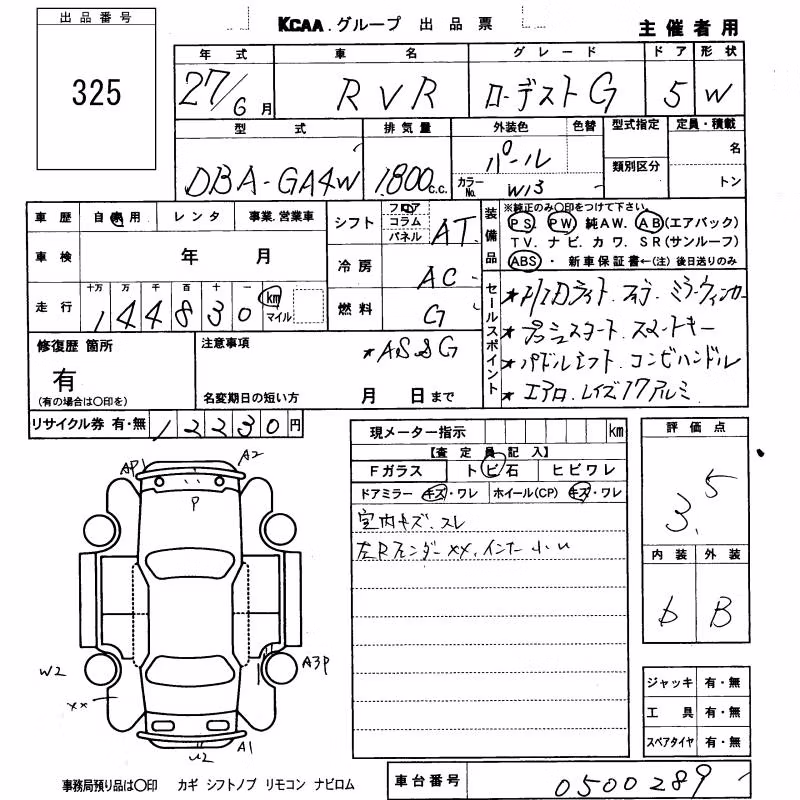 出品番号
325
KCAA.グループ 出品票
主催者用
年式 車名 グレード ドア 形状
27/6月 RVR ローデスト G 5 W
型式 排気量 外装色 色替 型式指定 定員・積載
DBA-GA4W 1800c.c. パール 名
カラーNo. W13 類別区分 トン
車歴 自家用 レンタ 事業.営業車
シフト フロア コラム パネル AT
車検 年 月
冷房 AC
走行 十万 万 千 百 十 一
144830 km マイル
燃料 G
装備品
※純正のみ○印をつけて下さい。
PS. PW. 純AW. AB(エアバック)
TV. ナビ. カワ. SR(サンルーフ)
ABS ・ 新車保証書←(注) 後日送りのみ
セールスポイント
★HIDライト.フォグ.ミラーウィンカー
★プッシュスタート.スマートキー
★パドルシフト.コンビハンドル
★エアロ.レイズ17アルミ
修復歴 箇所
有
(有の場合は○印を)
注意事項
★AS&G
名変期日の短い方 月 日まで
リサイクル券 有・無 12230円
現メーター指示 km
【査定員記入】
Fガラス トビ石 ヒビワレ
ドアミラー キズ・ワレ ホイール(CP) キズ・ワレ
室内キズ.スレ
左Rフェンダーxx.インナー小U
評価点
3.5
内装 外装
b B
AP1 A2
P
W2 A3P
xx
U2 A1
ジャッキ 有・無
工具 有・無
スペアタイヤ 有・無
事務局預り品は○印 カギ シフトノブ リモコン ナビロム
車台番号 0500289